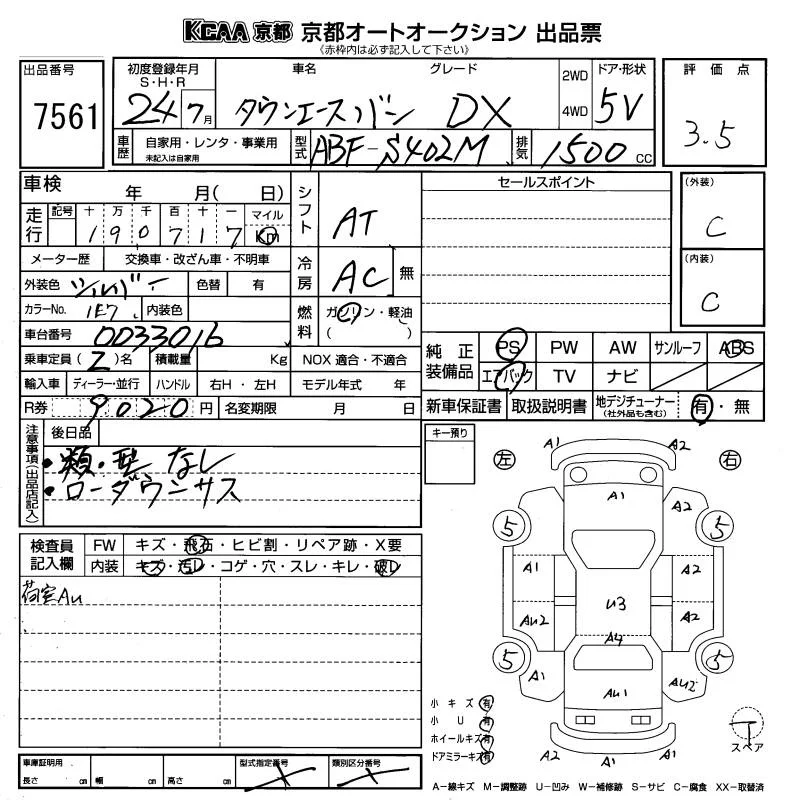 KCAA 京都 京都オートオークション 出品票
《赤枠内は必ず記入して下さい》
出品番号 7561
初度登録年月 S・H・R 24 7月
車名 タウンエースバン グレード DX
2WD 4WD
ドア・形状 5V
評価点 3.5
車歴 自家用・レンタ・事業用 未記入は自家用
型式 ABF-S402M
排気 1500 CC
車検 年 月( 日)
走行 記号 十 万 千 百 十 一 マイル Km
190717
メーター歴 交換車・改ざん車・不明車
外装色 シルバー 色替 有
カラーNo. 1E7 内装色
車台番号 0033016
乗車定員(2)名 積載量 Kg
輸入車 ディーラー・並行 ハンドル 右H・左H
R券 9020円 名変期限 月 日
シフト AT
冷房 AC 無
燃料 ガソリン・軽油 ( )
NOX 適合・不適合
モデル年式 年
セールスポイント
(外装) C
(内装) C
純正装備品 PS PW AW サンルーフ ABS
エアバック TV ナビ
新車保証書 取扱説明書 地デジチューナー (社外品も含む) 有・無
注意事項(出品店記入) 後日品
・類・型 なし
・ローダウンサス
キー預り
左 右
検査員記入欄 FW キズ・飛石・ヒビ割・リペア跡・X要
内装 キズ・汚レ・コゲ・穴・スレ・キレ・破レ
荷室AU
A1 A2
A1 A2
5 5
A1 A2
U3
AU2 A2
A4
5 5
A1 AU1 AU2
A2 A1 A2
小キズ 有
小U 有
ホイールキズ 有
ドアミラーキズ 有
スペア
車庫証明用 長さ cm 幅 cm 高さ cm
型式指定番号 類別区分番号
A−線キズ M−調整跡 U−凹み W−補修跡 S−サビ C−腐食 XX−取替済